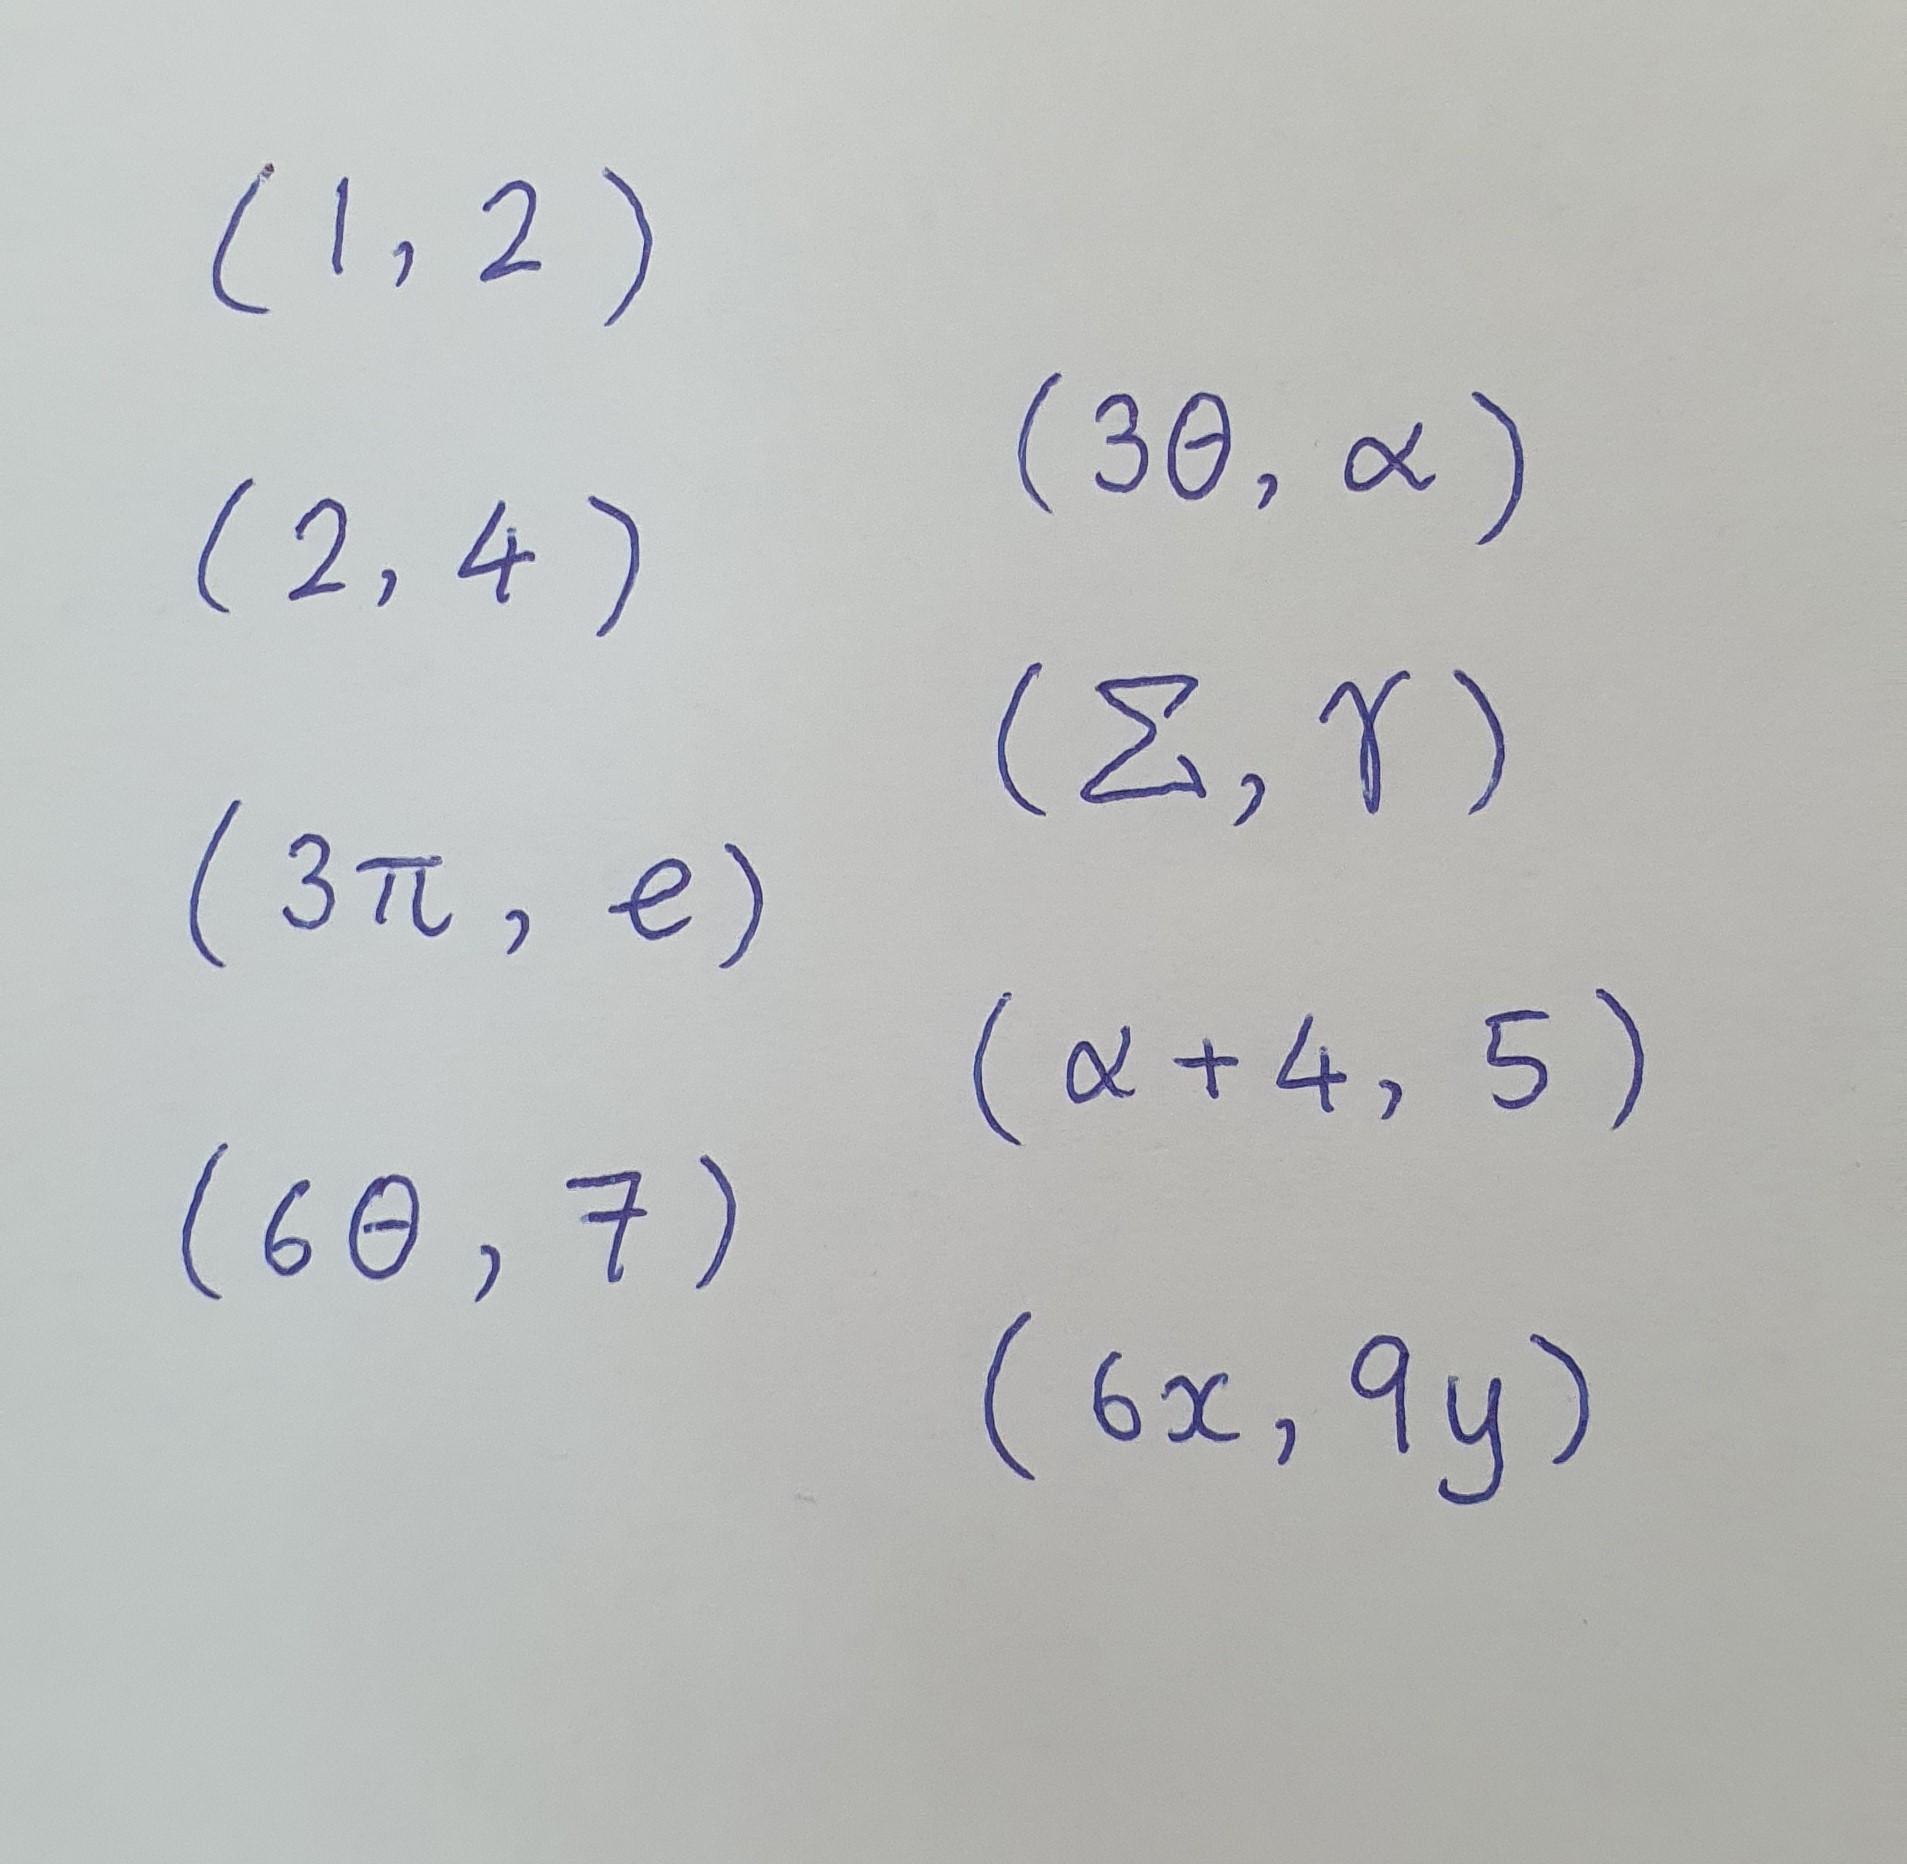 (1, 2)
(2, 4)
(3π, e)
(6θ, 7)
(3θ, α)
(Σ, γ)
(α+4, 5)
(6x, 9y)